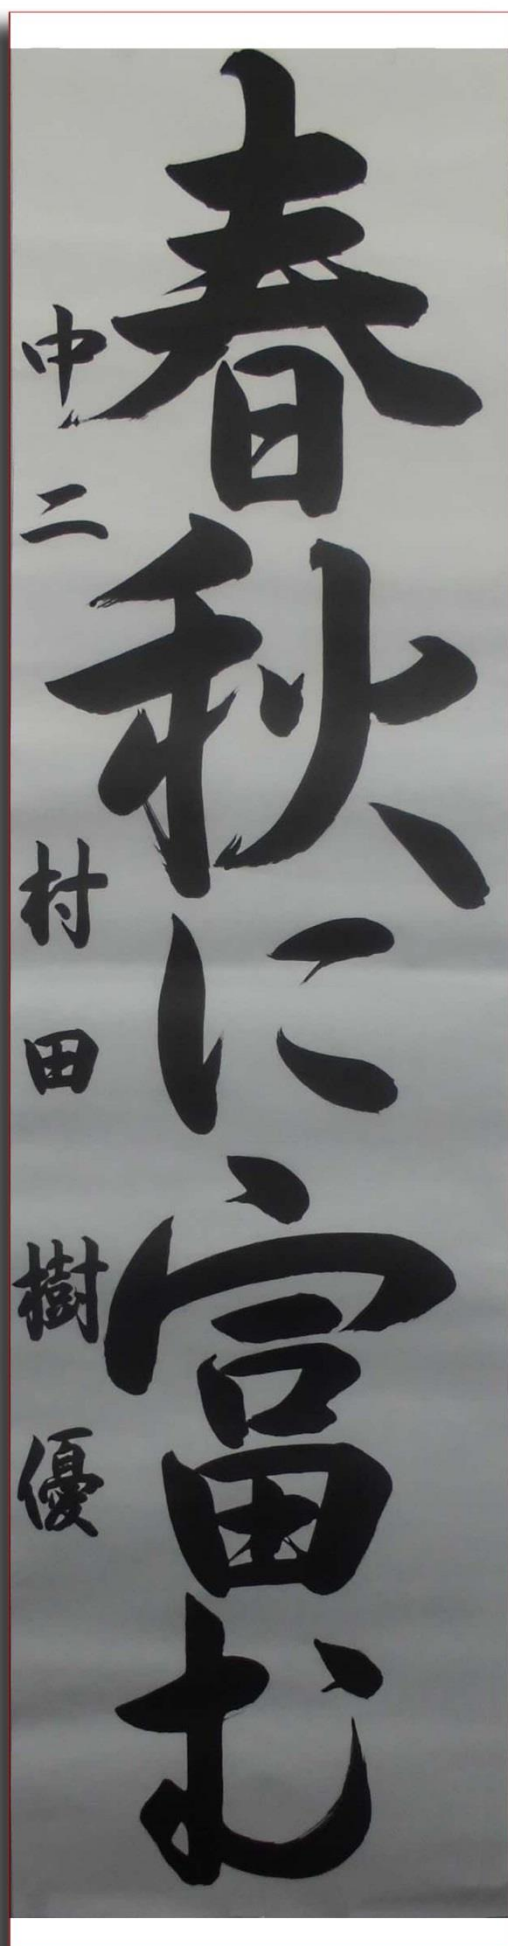 春秋に富む
中二 村田樹優